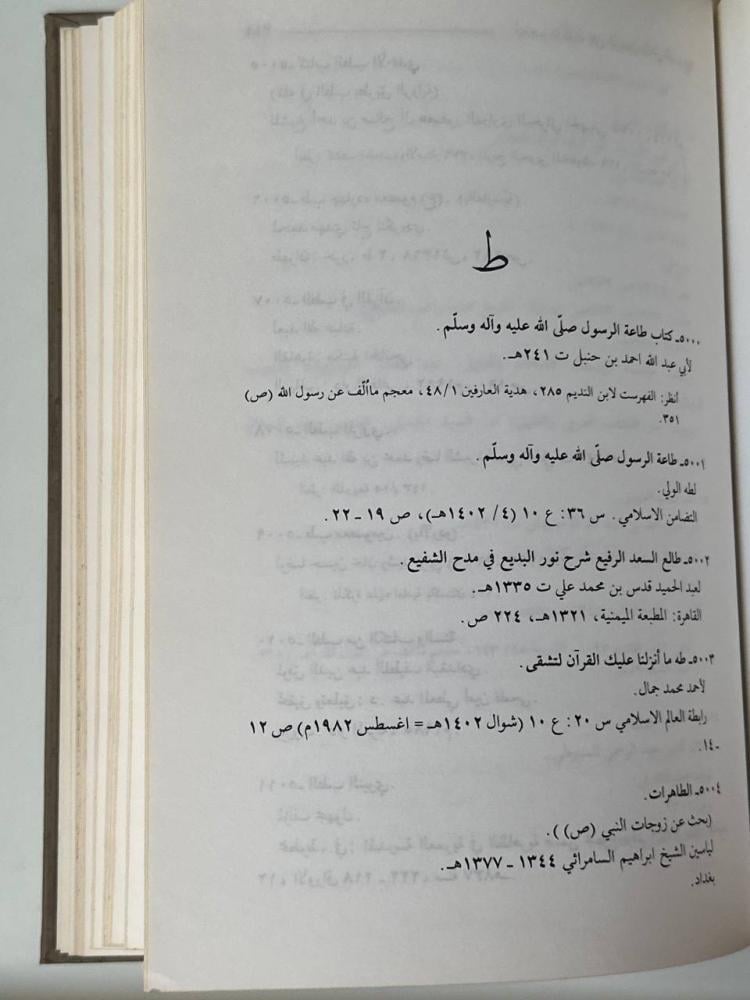 ط
٥٠٠٠ـ كتاب طاعة الرسول صلّى الله عليه وآله وسلّم.
لأبي عبد الله احمد بن حنبل ت ٢٤١هـ.
أنظر: الفهرست لابن النديم ٢٨٥، هدية العارفين ٤٨/١، معجم ماأُلّف عن رسول الله (ص)
٣٥١.
٥٠٠١ـ طاعة الرسول صلّى الله عليه وآله وسلّم.
لطه الولي.
التضامن الاسلامي. س ٣٦: ع ١٠ (٤/ ١٤٠٢هـ)، ص ١٩ ـ ٢٢.
٥٠٠٢ـ طالع السعد الرفيع شرح نور البديع في مدح الشفيع.
لعبد الحميد قدس بن محمد علي ت ١٣٣٥هـ.
القاهرة: المطبعة الميمنية، ١٣٢١هـ، ٢٢٤ ص.
٥٠٠٣ـ طه ما أنزلنا عليك القرآن لتشقى.
لأحمد محمد جمال.
رابطة العالم الاسلامي س ٢٠: ع ١٠ (شوال ١٤٠٢هـ = اغسطس ١٩٨٢م) ص ١٢
ـ١٤.
٥٠٠٤ـ الطاهرات.
(بحث عن زوجات النبي (ص) ).
لياسين الشيخ ابراهيم السامرائي ١٣٤٤ ـ ١٣٧٧هـ.
بغداد.